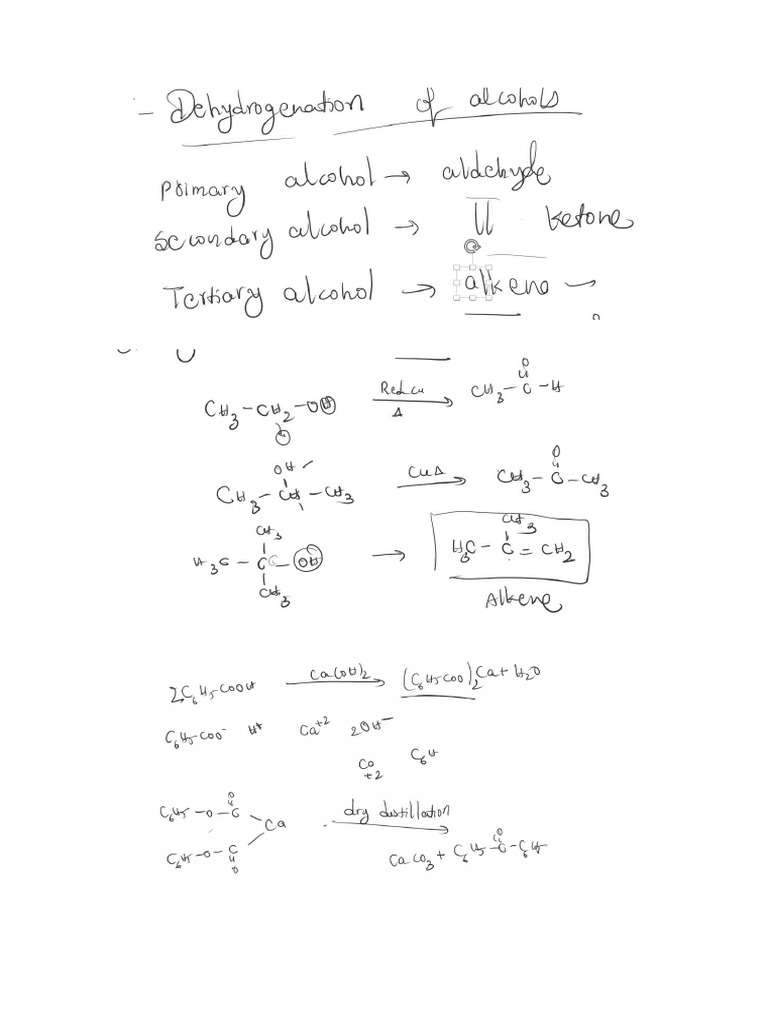 - Dehydrogenation of alcohols
Primary alcohol → aldehyde
Secondary alcohol → ketone
Tertiary alcohol → alkene
CH3-CH2-OH Red Cu Δ → CH3-C-H
O
OH
CH3-CH-CH3 Cu Δ → CH3-C-CH3
O
CH3
H3C-C-OH → H3C-C=CH2
CH3
CH3
Alkene
2C6H5COOH Ca(OH)2 → (C6H5COO)2Ca + H2O
C6H5-COO- H+ Ca+2 2OH-
Co +2 C6H
C6H5-O-C
O
Ca
C6H5-O-C
O
dry distillation →
CaCO3 + C6H5-C-C6H5
O